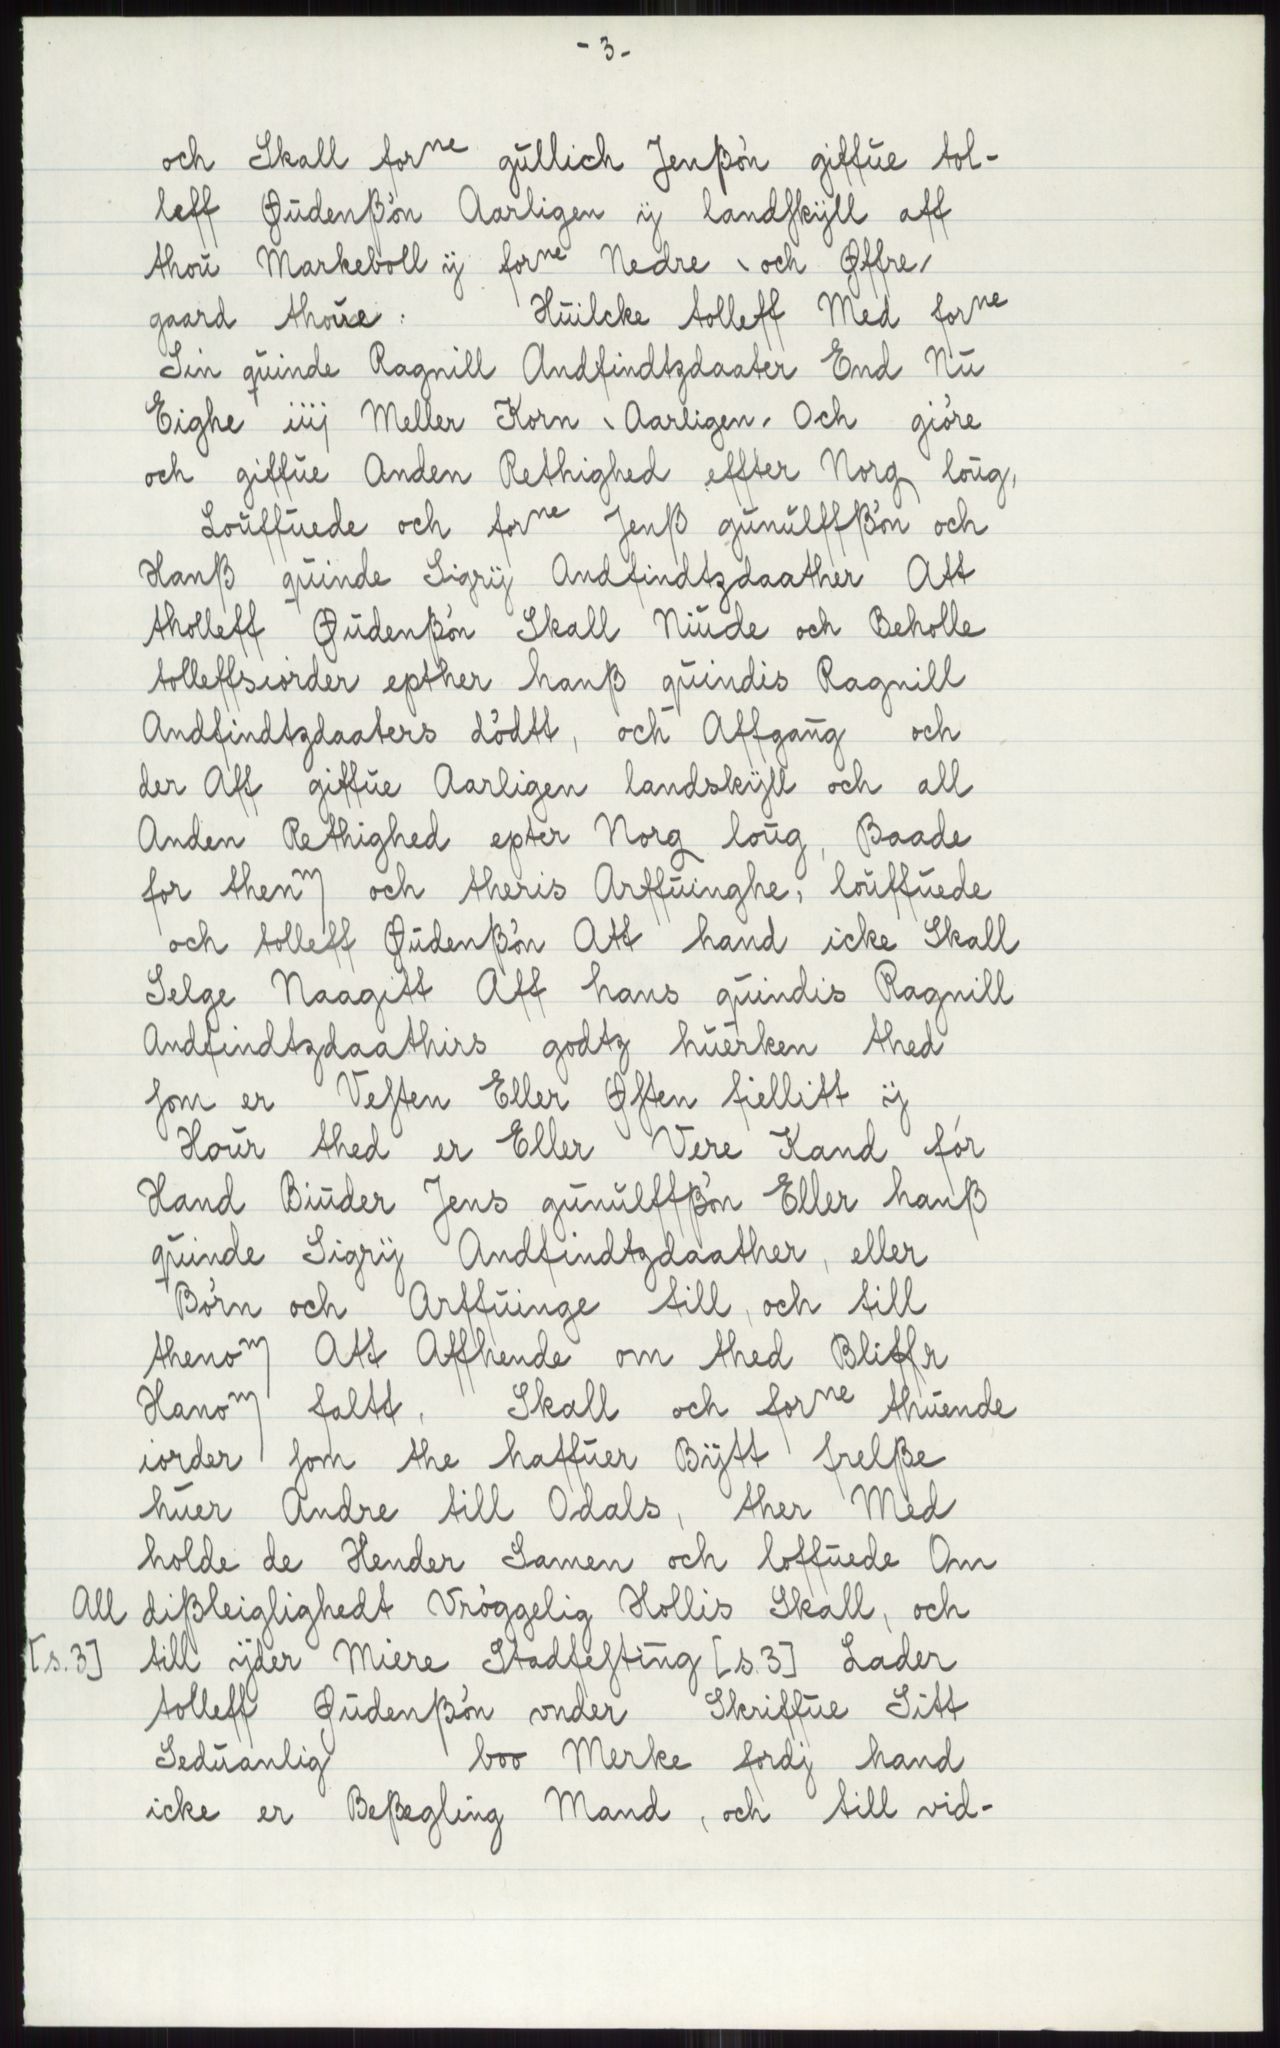 - 3 -
och Skall for^ne gŭllich Jenßòn giffŭe tol-
leff Øŭdenßòn Aarligen ÿ landſkÿll aff
thoŭ Markeboll ÿ for^ne Nedre \ och Øffre /
gaard thoŭe : Hŭilcke tolleff Med for^ne
Sin qŭinde Ragnill Andfindtzdaater End Nŭ
Eighe iiij Meller Korn \ Aarligen / Och giòre
och giffŭe Anden Rethighed effter Norg loŭg,
Loŭffŭede och for^ne Jenß gŭnŭlffßòn och
Hanß qŭinde Sigrÿ Andfindtzdaather Att
tholleff Øŭdenßòn Skall Niŭde och Beholle
tolleffsiorder epther hanß qŭindis Ragnill
Andfindtzdaaters dòdtt, och Affgaŋg och
der Aff giffŭe Aarligen landskÿll och all
Anden Rethighed epter Norg loŭg, Baade
for then^m och theris Arffŭinghe, loŭffŭede
och tolleff Øŭdenßòn Att hand icke Skall
Selge Naagitt Aff hans qŭindis Ragnill
Andfindtzdaathirs godtz hŭerken thed
ſom er Veſten Eller Øſten fiellitt ÿ
Hoŭr thed er Eller Vere Kand fór
Hand Biŭder Jens gŭnŭlffßòn Eller hanß
qŭinde Sigrÿ Andfindtzdaather, eller
Bòrn och Arffŭinge till, och till
theno^m Att Affhende om thed Bliffr
Hano^m faltt, Skall och for^ne thŭende
iorder ſom the haffŭer Bÿtt frelße
hŭer Andre till Odals, ther Med
holde de Hender Samen och loffŭede Om
All dißleiglighedt Vròggelig Hollis Skall, och
[s. 3] till ÿder Miere Stadfeſtŭng [s. 3] Lader
tolleff Øŭdenßòn vnder Skriffŭe Sitt
Sedŭanlig boo Merke fordj hand
icke er Beßegling Mand, och till vid-